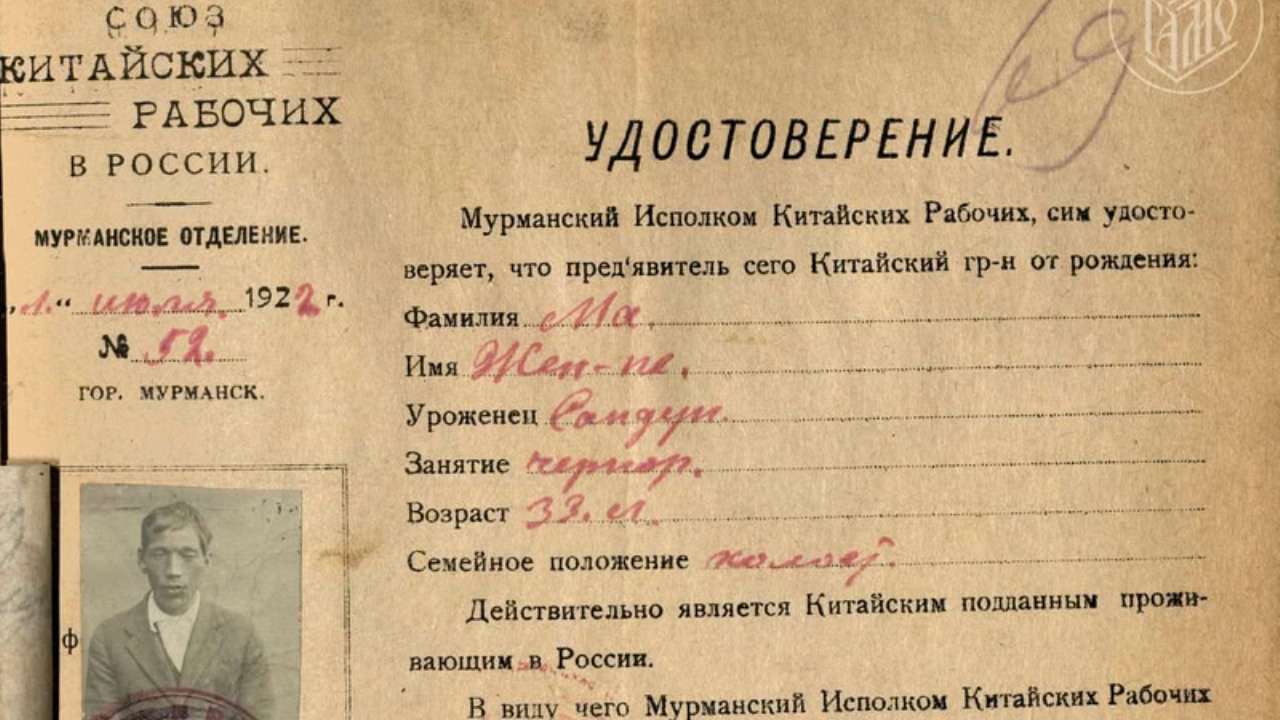 СОЮЗ
КИТАЙСКИХ
РАБОЧИХ
В РОССИИ.
МУРМАНСКОЕ ОТДЕЛЕНИЕ.
„1.“ июля 1922 г.
№ 52.
ГОР. МУРМАНСК.
ф
ГАМО
УДОСТОВЕРЕНИЕ.
Мурманский Исполком Китайских Рабочих, сим удосто-
веряет, что пред'явитель сего Китайский гр-н от рождения:
Фамилия Ма
Имя Жен-пе.
Уроженец Сандун.
Занятие чернор.
Возраст 33. л.
Семейное положение холост.
Действительно является Китайским подданным прожи-
вающим в России.
В виду чего Мурманский Исполком Китайских Рабочих